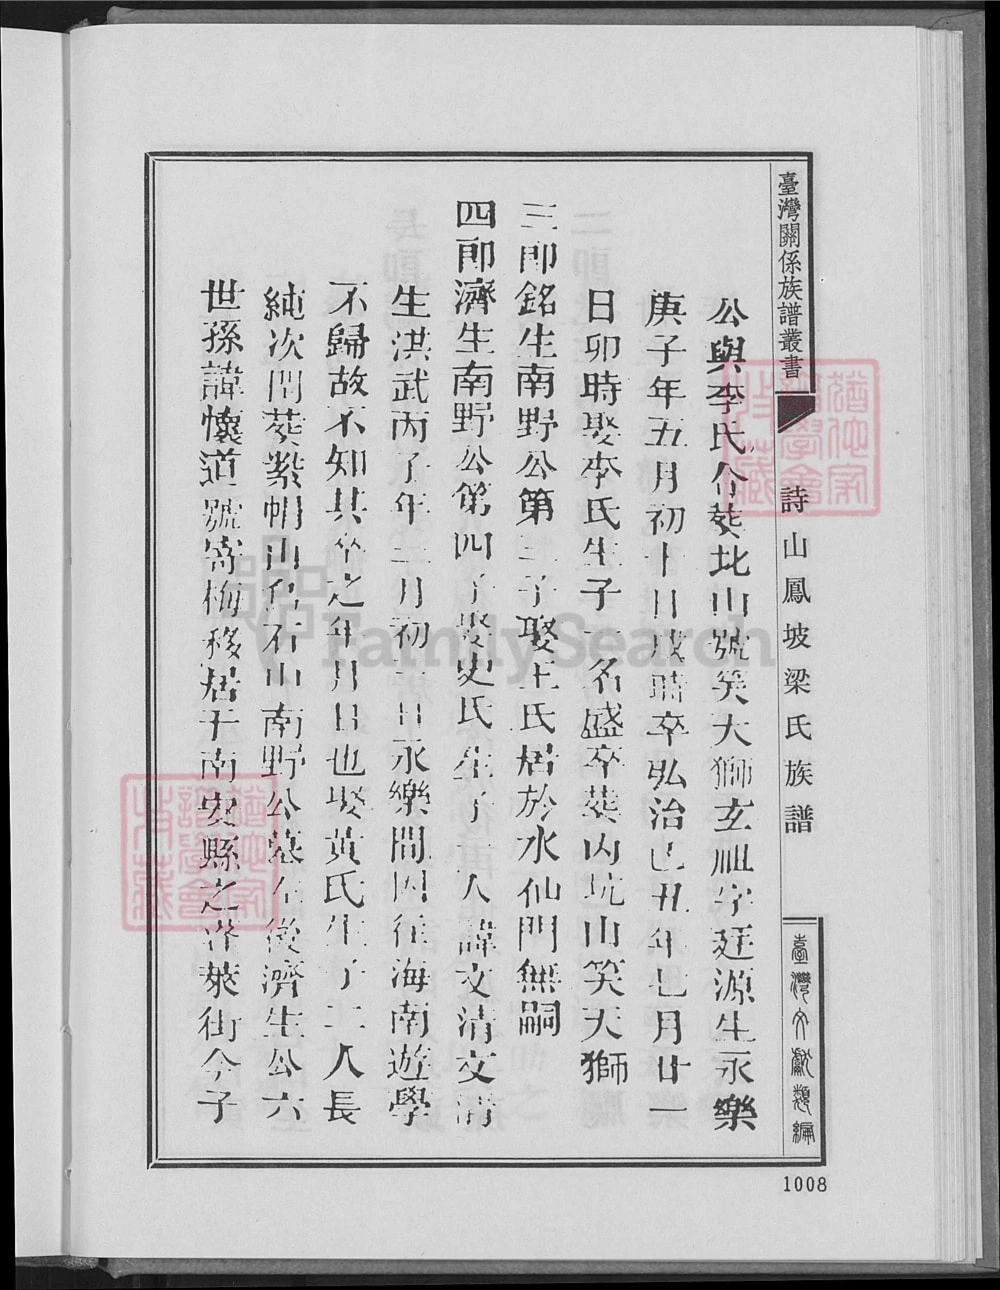 臺灣關係族譜叢書
詩山鳳坡梁氏族譜
臺灣文獻類編
公與李氏合葬北山號笑大獅玄祖字廷源生永樂
庚子年五月初十日戌時卒弘治己丑年七月廿一
日卯時娶李氏生子一名盛卒葬內坑山笑天獅
三郎銘生南野公第三子娶王氏居於水仙門無嗣
四郎濟生南野公第四子娶史氏生子二人諱文清文
生洪武丙子年二月初二日永樂間因往海南遊學
不歸故不知其卒之年月日也娶黃氏生子二人長
純次間葬紫帽山烏石山南野公墓左後濟生公六
世孫諱懷道號寄梅移居于南安縣之 萊街今子
1008
FamilySearch